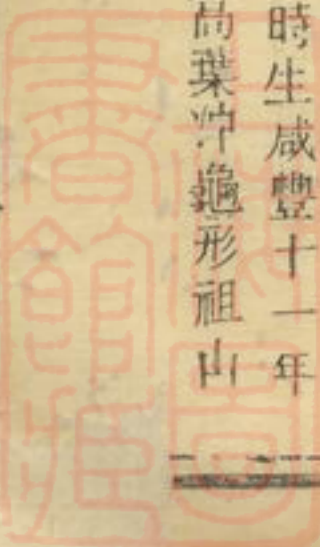 時生咸豐十一年
尚葉冲龜形祖山